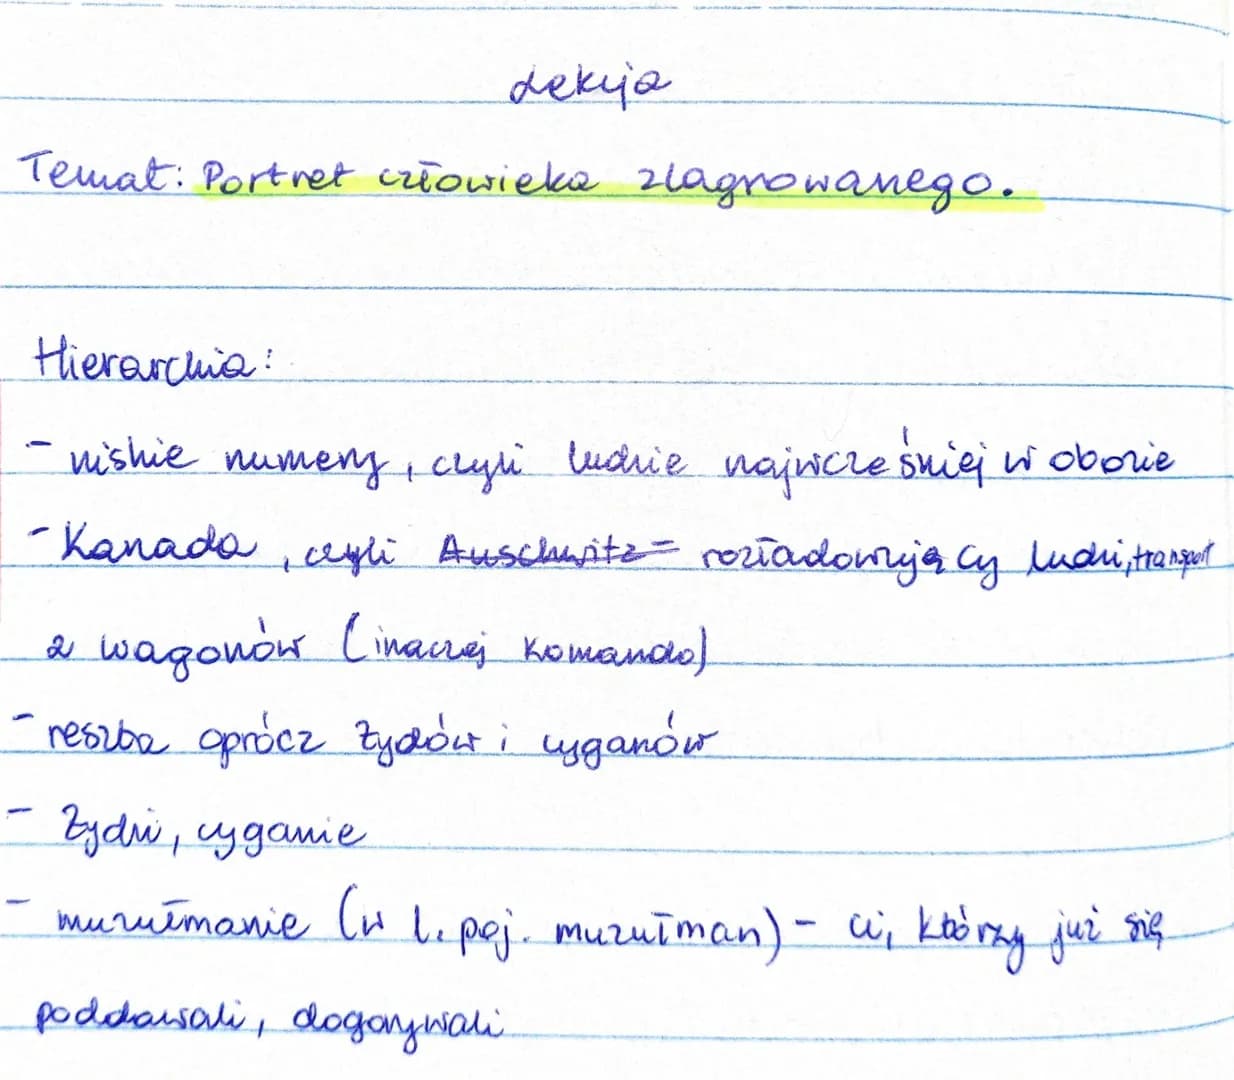 Lekcja
Temat: Portret człowieka zlagrowanego.
Hierarchia:
- niskie numery, czyli ludzie najwcześniej w obozie
- Kanada, czyli Auschwitz = rozładowujący ludzi, transport
z wagonów (inaczej komando)
- reszta oprócz Żydów i cyganów
- Żydzi, cyganie
- muzułmanie (w l. poj. muzułman) - ci, którzy już się
poddawali, dogorywali